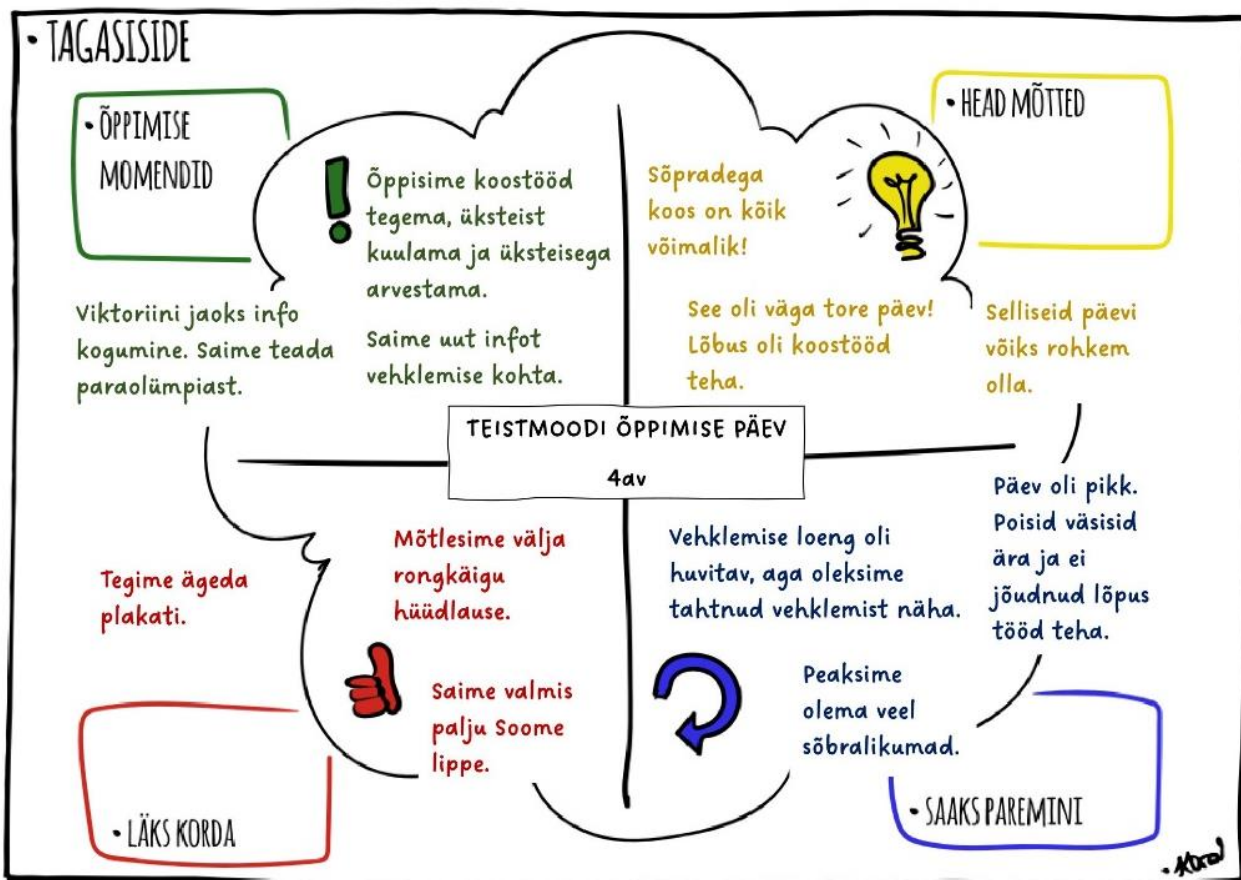 • TAGASISIDE
• ÕPPIMISE
MOMENDID
Õppisime koostööd
tegema, üksteist
kuulama ja üksteisega
arvestama.
Viktoriini jaoks info
kogumine. Saime teada
paraolümpiast.
Saime uut infot
vehklemise kohta.
• HEAD MÕTTED
Sõpradega
koos on kõik
võimalik!
See oli väga tore päev!
Lõbus oli koostööd
teha.
Selliseid päevi
võiks rohkem
olla.
TEISTMOODI ÕPPIMISE PÄEV
4av
Mõtlesime välja
rongkäigu
hüüdlause.
Tegime ägeda
plakati.
Saime valmis
palju Soome
lippe.
• LÄKS KORDA
Vehklemise loeng oli
huvitav, aga oleksime
tahtnud vehklemist näha.
Päev oli pikk.
Poisid väsisid
ära ja ei
jõudnud lõpus
tööd teha.
Peaksime
olema veel
sõbralikumad.
• SAAKS PAREMINI